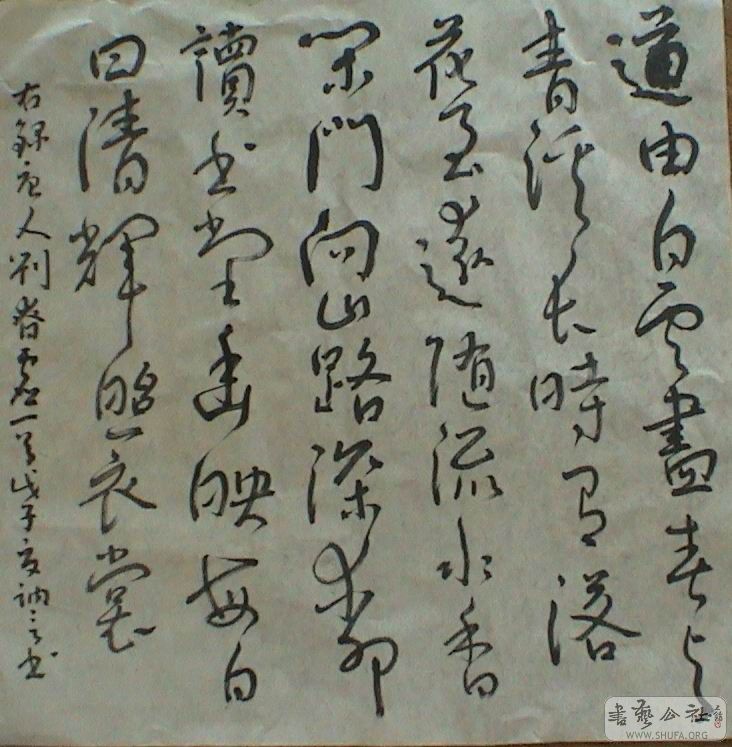 道由白雲盡春与
青溪長時有落
花至遠随流水香
閑門向山路深柳
讀书堂幽映每白
日清輝照衣裳
右録唐人刘昚虛一首戊子夏訥书
書藝公社
WWW.SHUFA.ORG